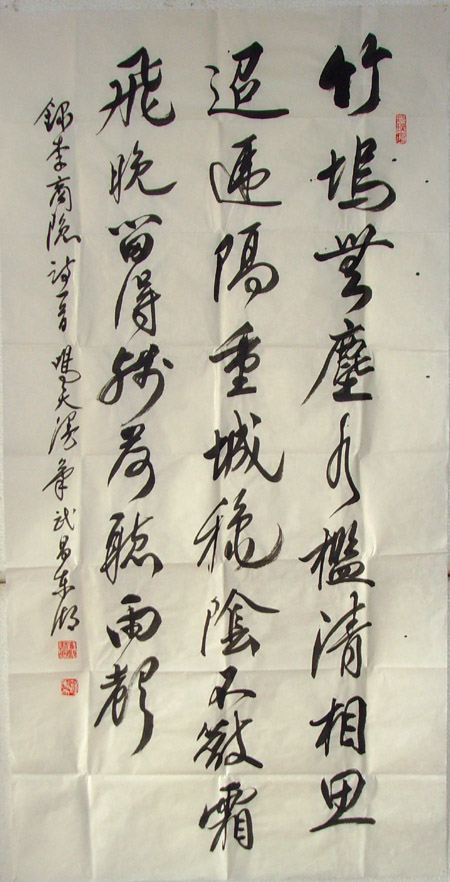 竹塢無塵水檻清相思
迢遞隔重城穐陰不散霜
飛晚留得殘荷聽雨聲
錄李商隱詩一首 漫筆武昌東湖